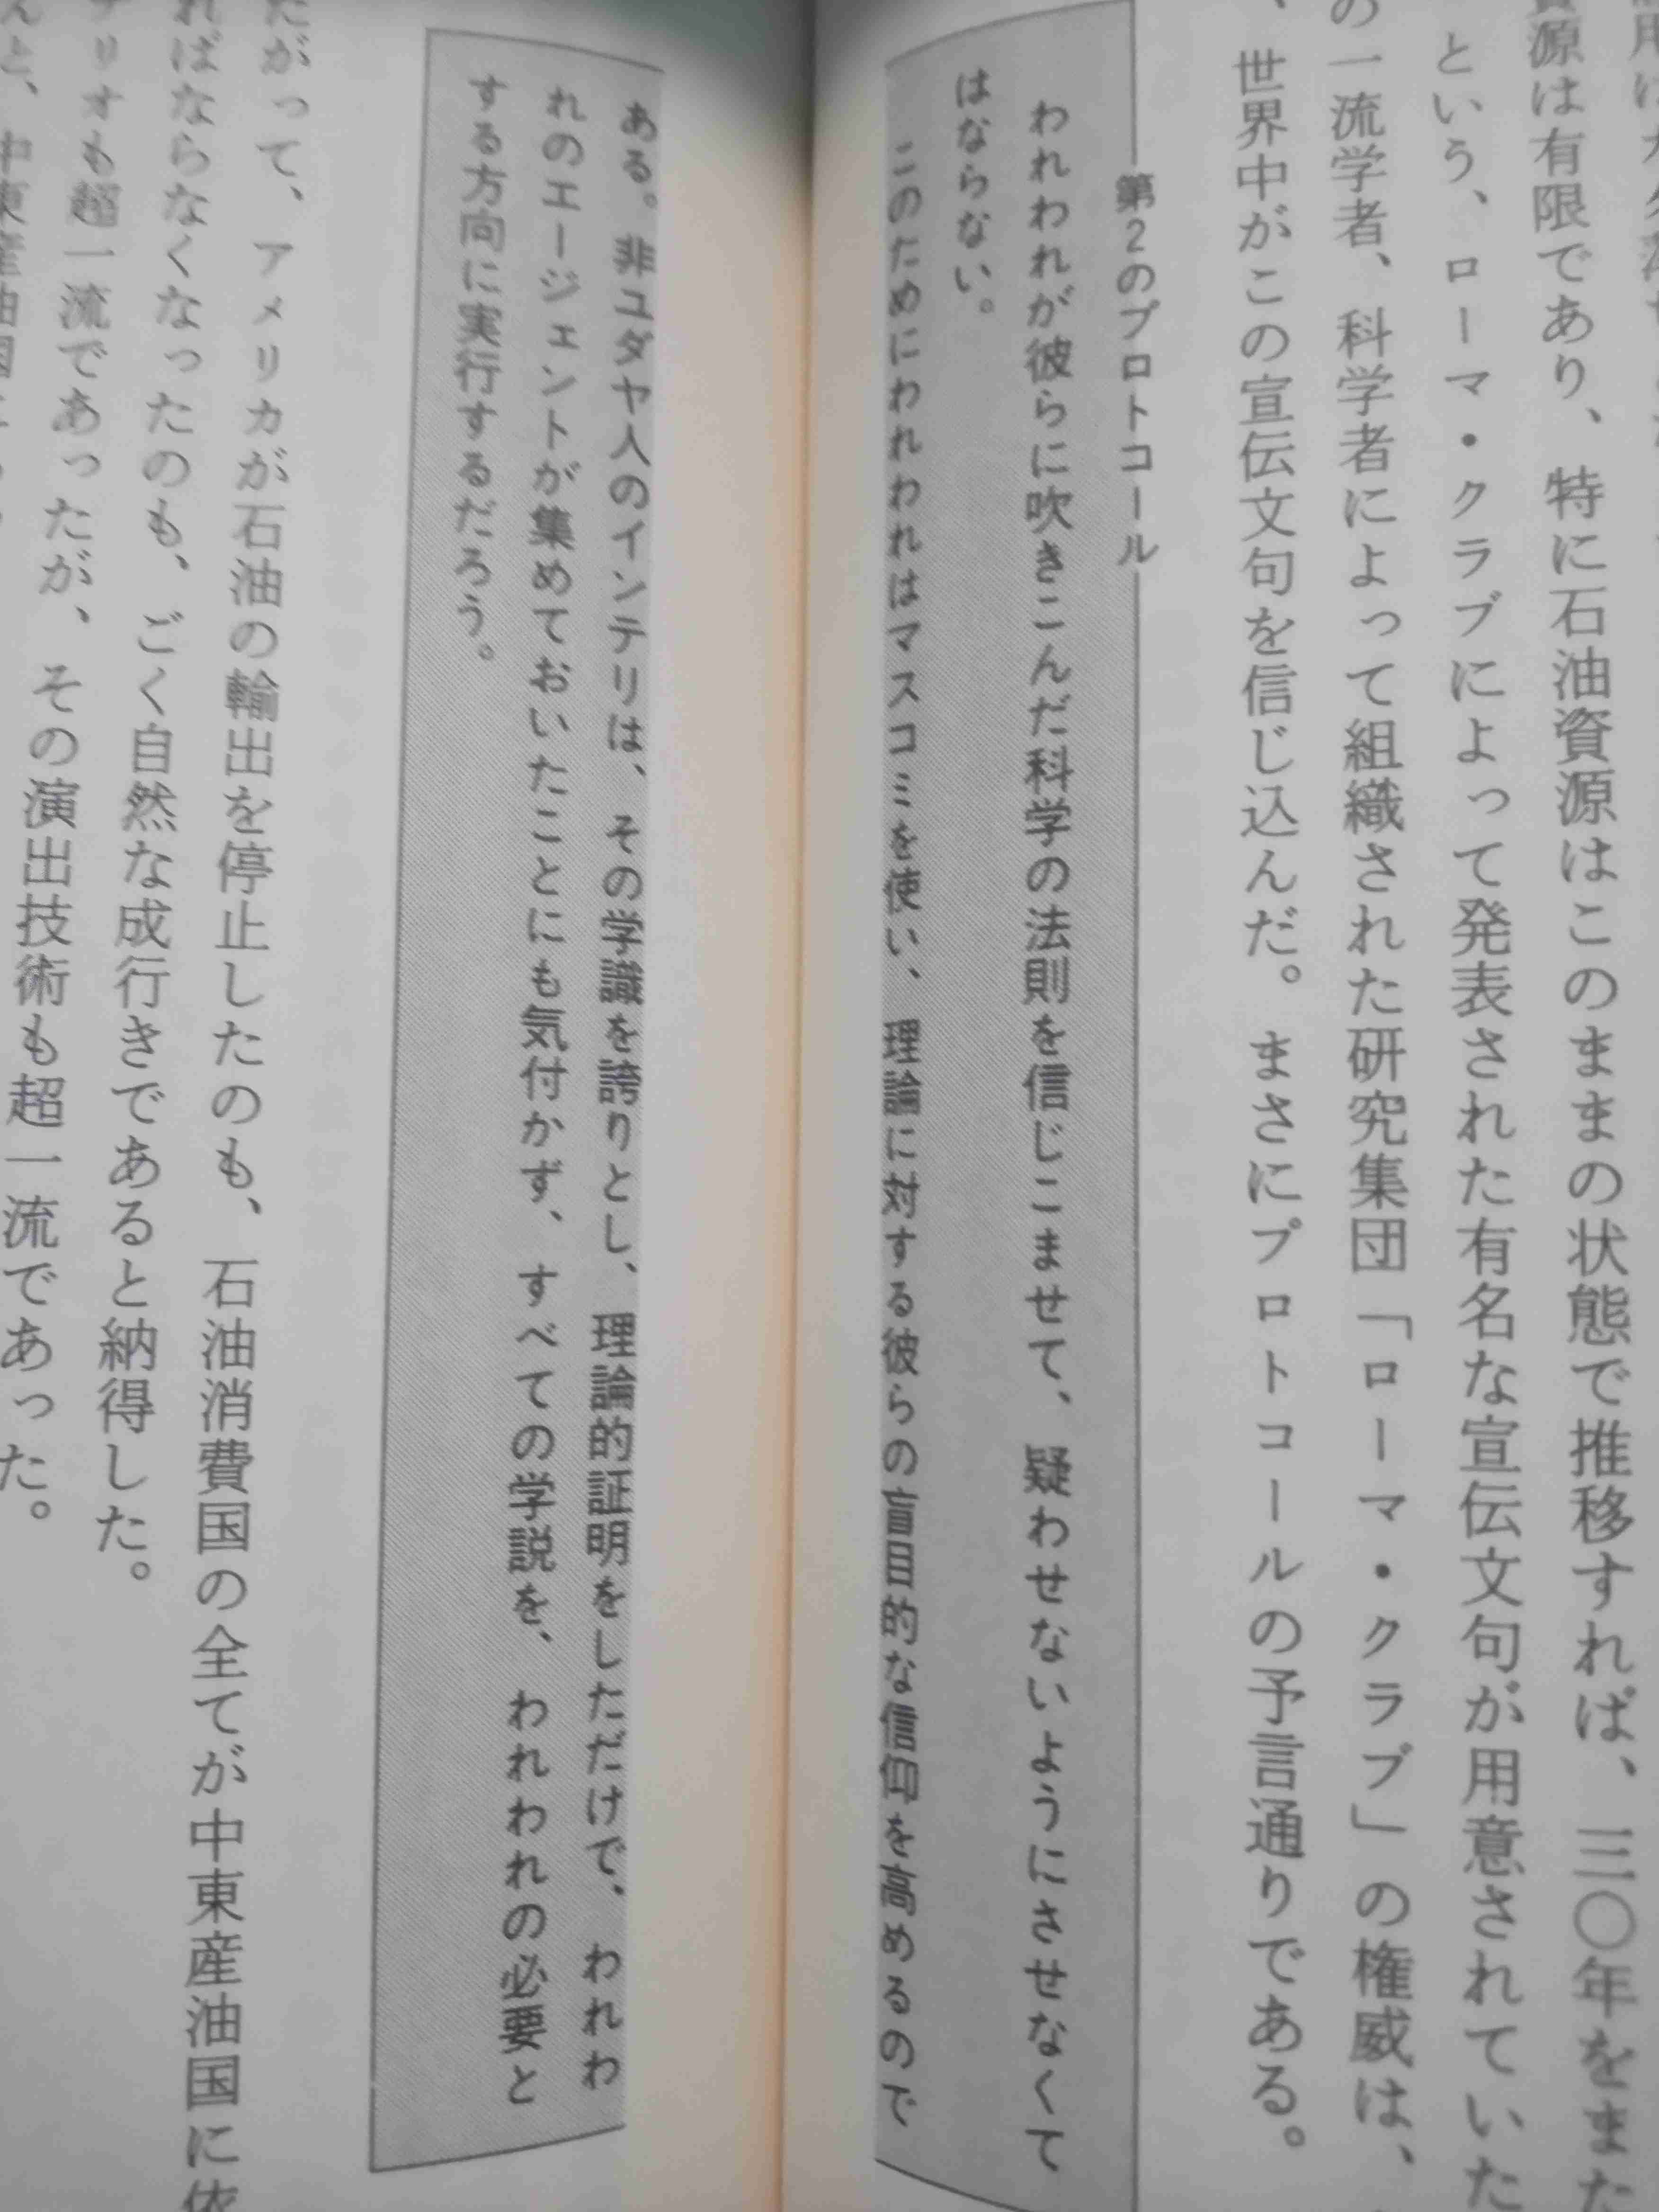 資源は有限であり、特に石油資源はこのままの状態で推移すれば、三〇年をまた
という、ローマ・クラブによって発表された有名な宣伝文句が用意されていた
の一流学者、科学者によって組織された研究集団「ローマ・クラブ」の権威は、
、世界中がこの宣伝文句を信じ込んだ。まさにプロトコールの予言通りである。
第2のプロトコール
われわれが彼らに吹きこんだ科学の法則を信じこませて、疑わせないようにさせなくて
はならない。
このためにわれわれはマスコミを使い、理論に対する彼らの盲目的な信仰を高めるので
ある。非ユダヤ人のインテリは、その学識を誇りとし、理論的証明をしただけで、われわ
れのエージェントが集めておいたことにも気付かず、すべての学説を、われわれの必要と
する方向に実行するだろう。
たがって、アメリカが石油の輸出を停止したのも、石油消費国の全てが中東産油国に依
ればならなくなったのも、ごく自然な成行きであると納得した。
ナリオも超一流であったが、その演出技術も超一流であった。